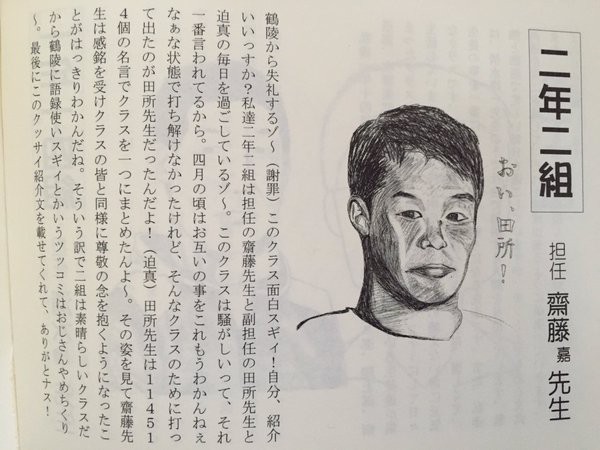 二年二組
担任 齋藤嘉先生
おい、田所!
鶴陵から失礼するゾ～(謝罪)このクラス面白スギィ!自分、紹介
いいっすか?私達二年二組は担任の齋藤先生と副担任の田所先生と
迫真の毎日を過ごしているゾ～。このクラスは騒がしいって、それ
一番言われてるから。四月の頃はお互いの事をこれもうわかんねぇ
なぁな状態で打ち解けなかったけれど、そんなクラスのために打っ
て出たのが田所先生だったんだよ!(迫真)田所先生は11451
4個の名言でクラスを一つにまとめたんよ～。その姿を見て齋藤先
生は感銘を受けクラスの皆と同様に尊敬の念を抱くようになったこ
とがはっきりわかんだね。そういう訳で二組は素晴らしいクラスだ
から鶴陵に語録使いスギィとかいうツッコミはおじさんやめちくり
～。最後にこのクッサイ紹介文を載せてくれて、ありがとナス!